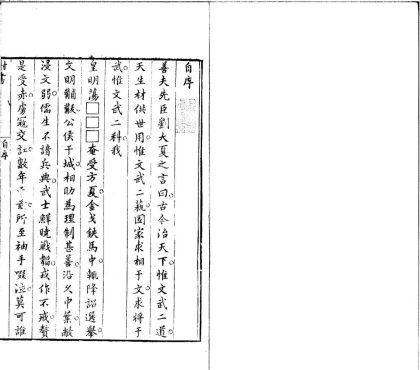 自序
善夫先臣劉大夏之言曰古今治天下惟文武二道
天生材供世用惟文武二藝國家求相于文求將于
武惟文武二科我
皇明蕩□□□奄受方夏金戈鉄馬中輒降詔選舉
文明黼黻公侯干城相助為理制甚善沿久中葉敝
浸文弱儒生不諳兵典武士鮮曉戰韜戎作不戒贅
是受赤虜寇交訌數年所至袖手啜泣莫可誰
自序